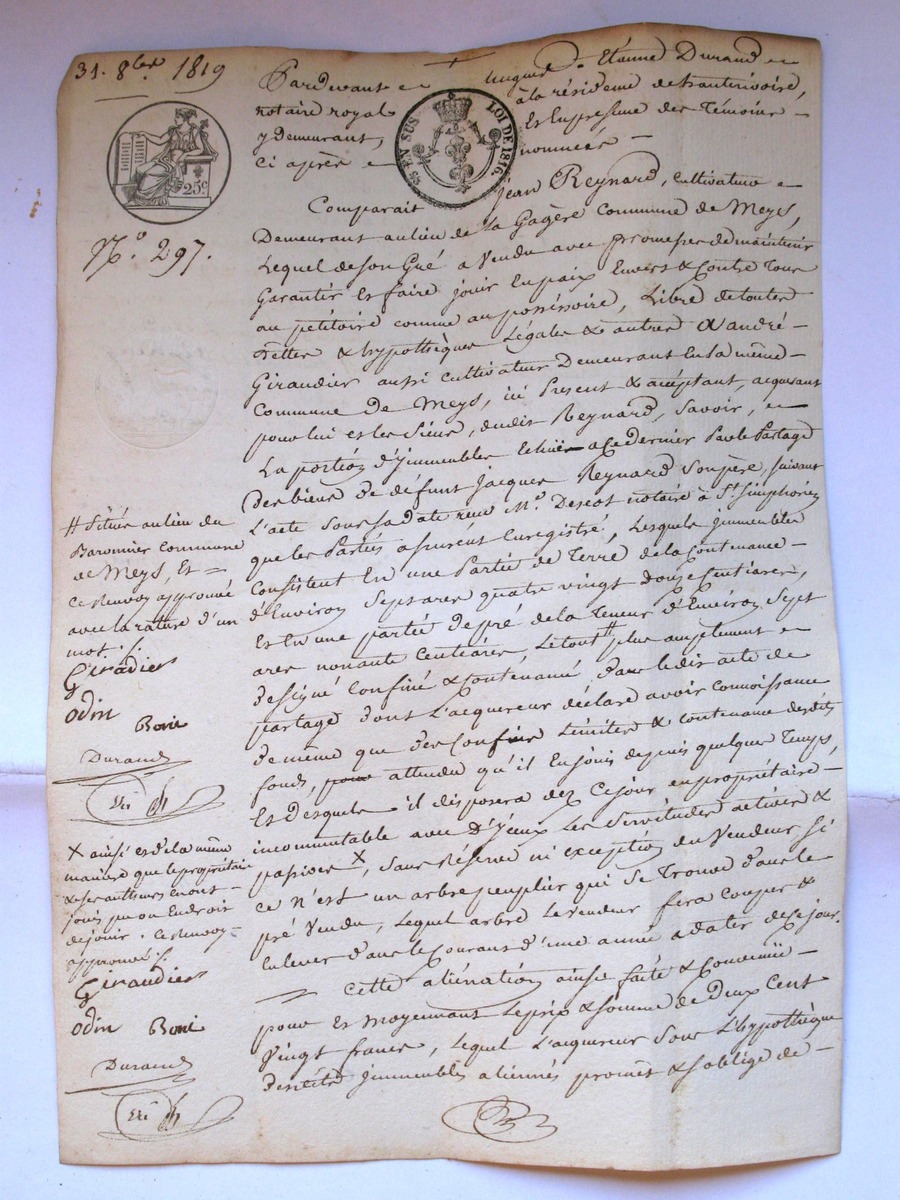 31. 8bre 1819
Pardevant Hugues Etienne Durand
notaire royal à la résidence de hauterivoire,
y Demeurant, Et En presence des Témoins
ci après nommés
25 EN SUS LOI DE 1816
25c
N.º 297.
Comparait jean Reynard, cultivateur
Demeurant au lieu de la Gagère commune de Meys,
Lequel de son Gré a Vendu avec promesse de maintenir
Garantir Et faire jouir En paix Envers & Contre Tous
au pétitoire comme au possessoire, Libre de toutes
Dettes & hypothèques Légales & autres à andré
Giraudier aussi cultivateur Demeurant En la même
Commune De Meys, ici Present & acceptant, acquerant
pour lui et les Siens, dudit Reynard, Savoir,
La portion d'Immeubles Echue a ce dernier Par le Partage
Des biens De défunt Jacques Reynard Son père, suivant
L'acte Sous sa date reçu Me. Descot notaire à St. Simphorien
que les Parties assurent Enregistré, Lesquels immeubles
Consistent En une Partie de Terre de la Contenance
d'Environ Sept ares quatre vingt Douze Centiares,
Et En une partie de pré de la Teneur d'Environ Sept
ares nonante Centiares, Le tout # plus amplement
Désigné Confiné & Contenancé Dans le dit acte de
partage Dont L'acquereur déclare avoir connoissance
De même que Des Confins Limites & contenance desdits
fonds, pour attendu qu'il En jouis depuis quelque Temps,
Et Desquels il disposera dez ce jour en propriétaire
incommutable avec D'Iceux Les Servitudes actives &
passives X, Sans Réserve ni exception du Vendeur, Si
ce n'est un arbre peuplier qui se Trouve Dans le
pré Vendu, Lequel arbre Le vendeur fera couper &
Enlever dans le Courant d'une année à dater de ce jour.
Cette aliénation ainsi faite & Convenüe
pour Et Moyennant Le prix & somme de Deux Cent
Vingt francs, Lequel L'acquereur Sous L'hypothèque
Desdits Immeubles aliennés promet & s'oblige de
# Situés au lieu du
Baronnier Commune
de Meys, Et
Ce Renvoy approuvé
avec la rature d'un
mot
Giradier
Odin
Boni
Durand
X ainsi et de la même
maniere que le propriétaire
& ses autheurs En ont
joui pu ou En droit
de jouir. Ce Renvoy
approuvé
Giraudier
Odin Boni
Durand